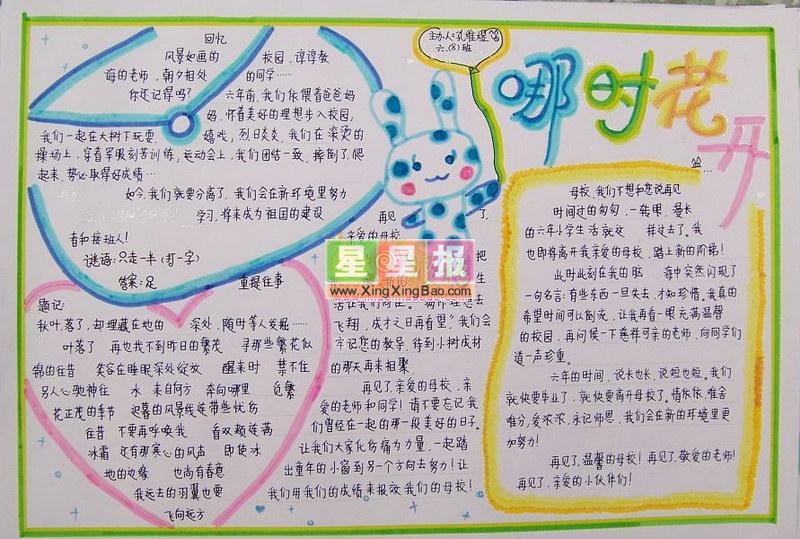 回忆
风景如画的 校园、谆谆教
诲的老师、朝夕相处 的同学……
你还记得吗? 六年前,我们依偎着爸爸妈
妈,怀着美好的理想步入校园,
我们一起在大树下玩耍 嬉戏,烈日炎炎,我们在滚烫的
操场上,穿着军服刻苦训练,运动会上,我们团结一致,摔倒了,爬
起来,势必取得好成绩…
如今,我们就要分离了,我们会在新环境里努力
学习,将来成为祖国的建设
者和接班人!
谜语:只走一半(打一字)
答案:足
重提往事
题记:
秋叶落了,却埋藏在他的 深处,随时等人发掘……
叶落了 再也找不到昨日的繁茂 寻那些繁花似
锦的往昔 笑容在睡眠深处绽放 醒来时 禁不住
别人心驰神往 水 来自何方 奔向哪里
花正茂的季节 迟暮的风景线连带些忧伤
往昔 不要再呼唤我 看双颊缀满
冰霜 还有那寒心的风声 即使冰
地的边缘 也尚有春意
我远去的羽翼也要
飞向远方
主办人:孔维程
六.(8)班
哪时花开
再见 了,
亲爱的母校
把
告让我们向往。
飞翔,成才之日再看望”我们会
牢记您的教导,待到小树成材
的那天再来相聚。
再见了亲爱的母校,亲
爱的老师和同学!请不要忘记我
们曾经在一起的那一段美好的日子。
让我们大家化伤痛为力量,一起踏
出童年的小留到另一个方向去努力!让
我们用我们的成绩来报效我们的母校!
母校,我们不想和您说再见
时间过的匆匆,一转眼,漫长
的六年小学生活就这 样过去了。我
也即将离开我亲爱的母校,踏上新的阶梯!
此时此刻在我的脑 海中突然闪现了
一句名言:有些东西一旦失去,才知珍惜。我真的
希望时间可以倒流,让我再看一眼充满温馨
的校园,再问候一下慈祥可亲的老师,向同学们
道一声珍重。
六年的时间,说长也长,说短也短。我们
就快要毕业了,就快要离开母校了。情依依,难舍
难分,爱浓浓,永记师恩,我们会在新的环境里更
加努力!
再见了,温馨的母校!再见了,敬爱的老师!
再见了,亲爱的小伙伴们!
星星报
www.XingXingBao.com